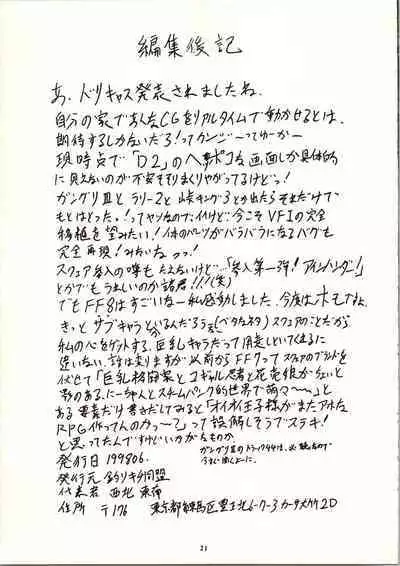 編集後記
あ、ドリキャス発表されましたね
自分の家であんなCGをリアルタイムで動かせるとは、
期待するしかないだろ!ってカンジーってゆーかー
現時点で「D2」のヘッポコな画面しか具体的
に見えないのが不安をそそりまくりやがってるけどっ!
ガングリ皿とラリー2と峠キング3とか出たらそれだけで
もとはとった。!ってヤツなので、イイけど…今こそVF1の完全
移植を望みたい!人体のパーツがバラバラになるバグも
完全再現!みたいなっっ!
スクェア参入の噂もたえないけど…「参入第一弾!アインハンダー!」
とかでもうれしいのか諸君!!!(笑)
でもFF8はすごいなー私感動しました。今度はホモですよ。
きっとサブキャラとかいるんだろうな(ベタなネタ)スクェアのことだから
私の心をゲットする、巨乳キャラだって用意していてくるに
違いない。話は変りますが以前からFF7ってスクェアのブランドを
伏せて「巨乳格闘家とコギャル忍者と花売娘が
影のある、にーちゃんとスチームパンク的世界で萌々〜〜」と
ある要素だけ書きだしてみると「オイオイ王子様がまたアホな
RPG作ってんのかっ〜」って誤解しそうでステキ!
と思ってたんですけどいかがなものか。
発行日 199806.
発行元 釣りキチ同盟
代表者 西北 東南
住所 〒176 東京都練馬区豊玉北6-7-3 2D
21